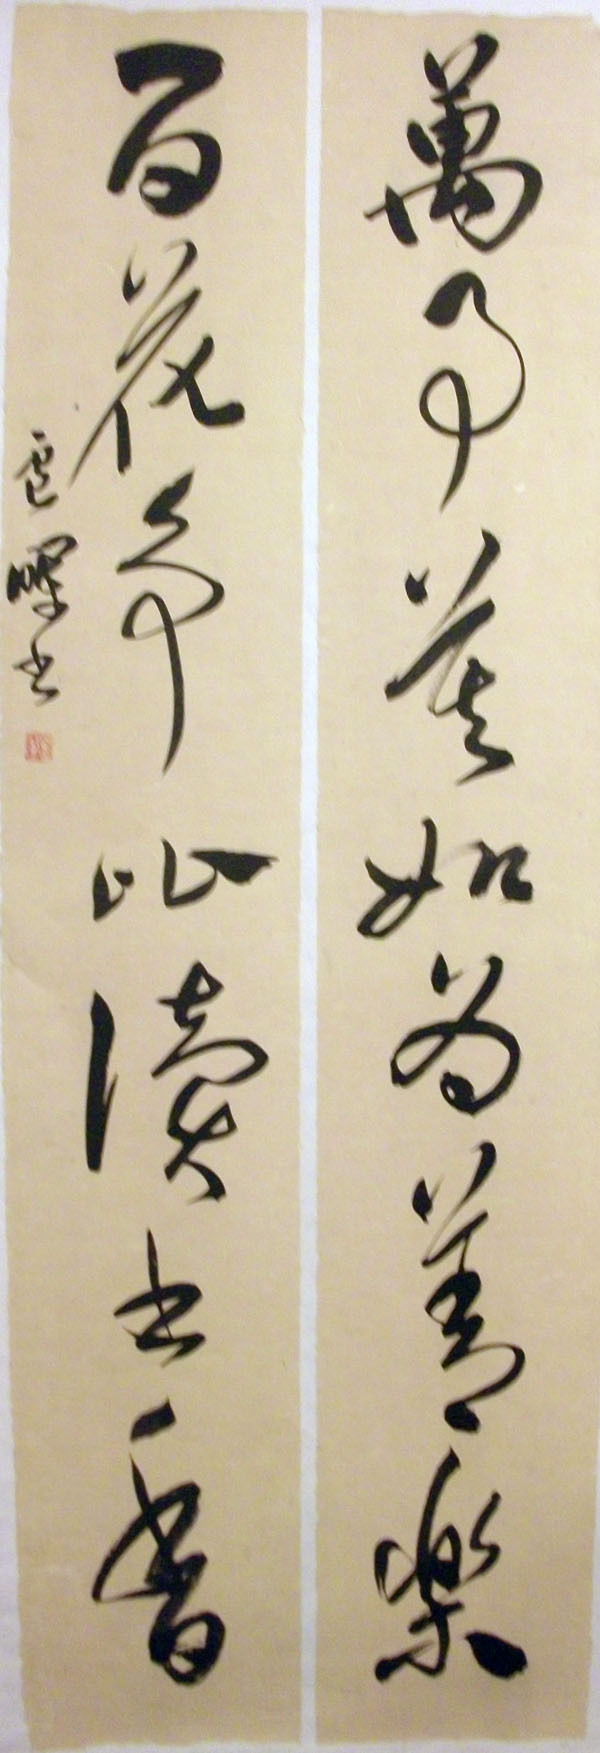 萬事莫如為善樂
百花爭比讀書香
書